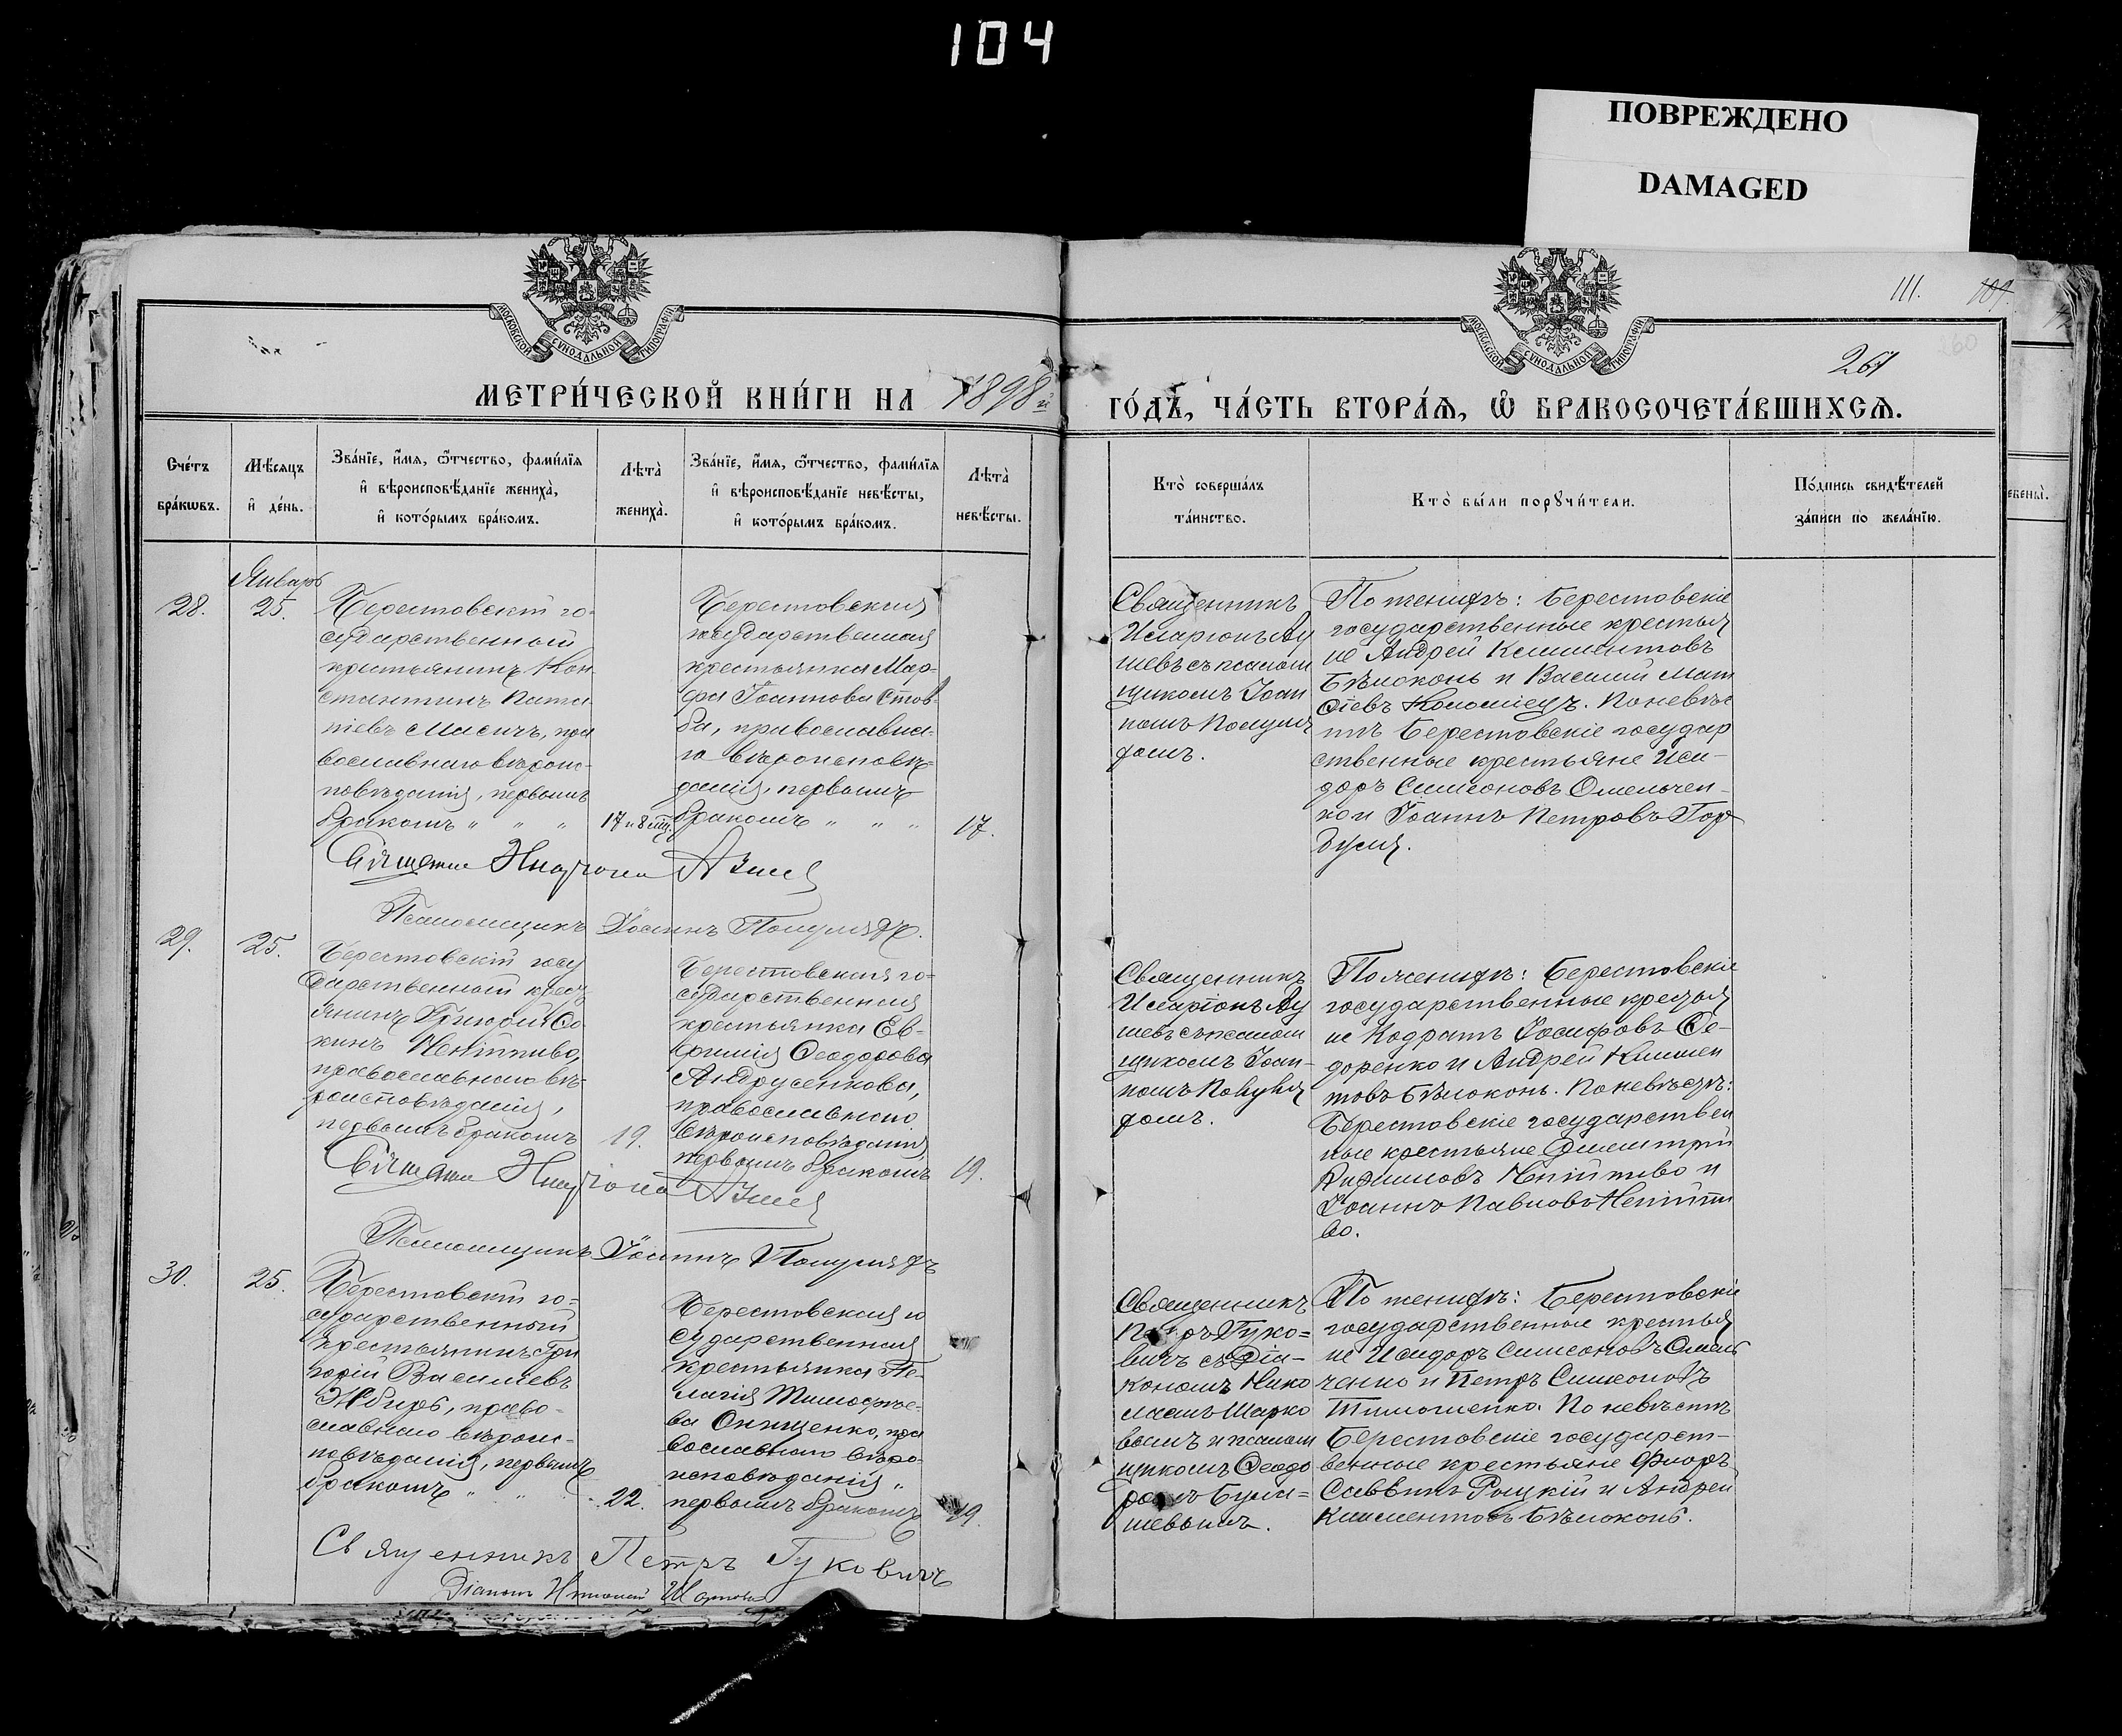 104
ПОВРЕЖДЕНО
DAMAGED
111. 109.
267
МОСКОВСКОЙ СѴНОДАЛЬНОЙ ТИПОГРАФІИ
МОСКОВСКОЙ СѴНОДАЛЬНОЙ ТИПОГРАФІИ
МЕТРИ́ЧЕСКОЙ КНИ́ГИ НА 1898й
ГО́ДЪ, ЧА́СТЬ ВТОРА́Ѧ, Ѽ БРАКОСОЧЕТА́ВШИХСѦ.
Сче́тъ
бра́кѡвъ.
Мѣ́сяцъ
и҆ де́нь.
Зва́нїе, и҆́мя, ѻ҆́тчество, фами́лїя
и҆ вѣроисповѣ́данїе жениха̀,
и҆ кото́рымъ бра́комъ.
Лѣта̀
жениха̀.
Зва́нїе, и҆́мя, ѻ҆́тчество, фами́лїя
и҆ вѣроисповѣ́данїе невѣ́сты,
и҆ кото́рымъ бра́комъ.
Лѣта̀
невѣ́сты.
Кто̀ соверша́лъ
та́инство.
Кто̀ бы́ли порꙋчи́тели.
По́дпись свидѣ́телей
за́писи по жела́нїю.
28.
Январь
25.
Берестовскій го-
сударственный
крестьянинъ Кон
стантинъ Ипата
православнаго вѣроис-
повѣданія, первымъ
бракомъ " " "
17 и 8 мц.
Берестовская
государственная
крестьянка Мар-
фа Іоаннова Стов-
ба, православна-
го вѣроисповѣ-
данія, первымъ
бракомъ " " "
17.
Священникъ
Иларіонъ Яу
шевъ съ псалом
щикомъ Іоан
номъ Полуля
хомъ.
По женихѣ: Берестовскіе
государственные крестья
не Андрей Климентовъ
Бѣлоконь и Василій Мат
ѳіевъ Коломіецъ. По невѣс
тѣ Берестовскіе государ
ственные крестьяне Иси-
доръ Симеоновъ Омельчен-
ко и Іоаннъ Петровъ Гор-
буля.
Псаломщикъ Іоаннъ Полуляхъ.
29.
25.
Берестовскій госу
дарственный крес
янинъ Григорій Со
кинъ Непійпиво,
православнаго вѣ-
роисповѣданія,
первымъ бракомъ
19.
Берестовская го-
сударственная
крестьянка Ев-
фимія Ѳеодорова
Андрусенкова,
православнаго
вѣроисповѣданія,
первымъ бракомъ
19.
Священникъ
Иларіонъ Яу
шевъ съ псалом
щикомъ Іоан-
номъ Полуля
хомъ.
По женихѣ: Берестовскіе
государственные крестья
не Кодратъ Іосифовъ Ѳе-
доренко и Андрей Климен
товъ Бѣлоконь. По невѣстѣ:
Берестовскіе государствен
ные крестьяне Димитрій
Непійпиво и
Іоаннъ Павловъ Непійпи
во.
Псаломщикъ Іоаннъ Полуляхъ
30.
25.
Берестовскій го-
сударственный
крестьянинъ Гри
горій Васильевъ
право-
славнаго вѣроис-
повѣданія, первымъ
бракомъ " "
22.
Берестовская го
сударственная
крестьянка Пе-
лагія Тимоѳѣе-
ва Онищенко, пра
вославнаго вѣро-
исповѣданія, "
первымъ бракомъ
19.
Священникъ
Петръ Гуко-
вичъ съ Діа-
кономъ Нико
лаемъ Шарко
вымъ и псалом
щикомъ Ѳеодо
ромъ Була-
шевымъ.
По женихѣ: Берестовскіе
государственные крестья
не Исидоръ Симеоновъ Омель
ченко и Петръ Симеоновъ
Тимошенко. По невѣстѣ
Берестовскіе государст-
венные крестьяне Флоръ
Саввинъ Рыцкій и Андрей
Климентовъ Бѣлоконь.
Священникъ Петръ Гуковичъ
Діаконъ Николай Шарковъ